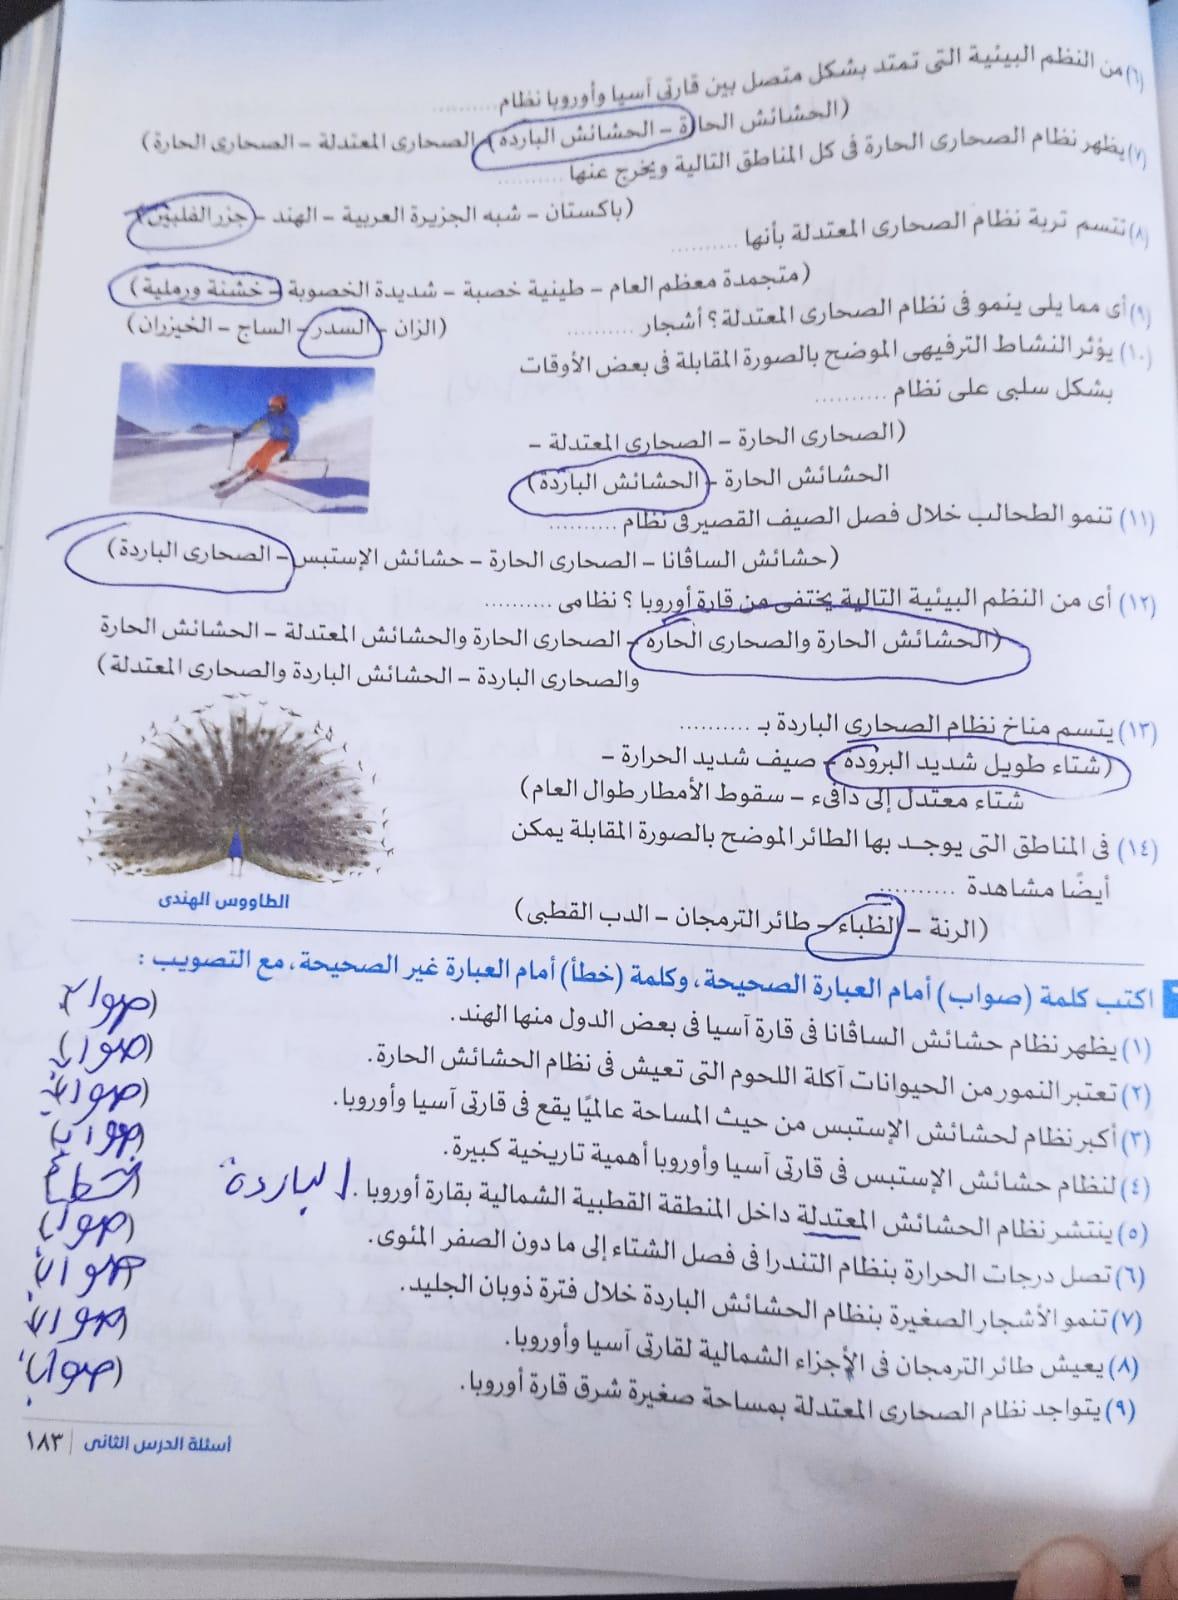 (٦) من النظم البيئية التى تمتد بشكل متصل بين قارتى آسيا وأوروبا نظام ..........
(الحشائش الحارة – الحشائش الباردة – الصحارى المعتدلة – الصحارى الحارة)
(٧) يظهر نظام الصحارى الحارة فى كل المناطق التالية ويخرج عنها ..........
(باكستان – شبه الجزيرة العربية – الهند – جزر الفلبين)
(٨) تتسم تربة نظام الصحارى المعتدلة بأنها ..........
(متجمدة معظم العام – طينية خصبة – شديدة الخصوبة – خشنة ورملية)
(٩) أى مما يلى ينمو فى نظام الصحارى المعتدلة ؟ أشجار ..........
(الزان – السدر – الساج – الخيزران)
(١٠) يؤثر النشاط الترفيهى الموضح بالصورة المقابلة فى بعض الأوقات
بشكل سلبى على نظام ..........
(الصحارى الحارة – الصحارى المعتدلة –
الحشائش الحارة – الحشائش الباردة)
(١١) تنمو الطحالب خلال فصل الصيف القصير فى نظام ..........
(حشائش الساڤانا – الصحارى الحارة – حشائش الإستبس – الصحارى الباردة)
(١٢) أى من النظم البيئية التالية يختفى من قارة أوروبا ؟ نظامى ..........
(الحشائش الحارة والصحارى الحارة – الصحارى الحارة والحشائش المعتدلة – الحشائش الحارة
والصحارى الباردة – الحشائش الباردة والصحارى المعتدلة)
(١٣) يتسم مناخ نظام الصحارى الباردة بـ ..........
(شتاء طويل شديد البرودة – صيف شديد الحرارة –
شتاء معتدل إلى دافىء – سقوط الأمطار طوال العام)
(١٤) فى المناطق التى يوجد بها الطائر الموضح بالصورة المقابلة يمكن
أيضًا مشاهدة ..........
الطاووس الهندى
(الرنة – الظباء – طائر الترمجان – الدب القطبى)
اكتب كلمة (صواب) أمام العبارة الصحيحة، وكلمة (خطأ) أمام العبارة غير الصحيحة، مع التصويب :
(١) يظهر نظام حشائش الساڤانا فى قارة آسيا فى بعض الدول منها الهند. (صواب)
(٢) تعتبر النمور من الحيوانات آكلة اللحوم التى تعيش فى نظام الحشائش الحارة. (صواب)
(٣) أكبر نظام لحشائش الإستبس من حيث المساحة عالميًا يقع فى قارتى آسيا وأوروبا. (صواب)
(٤) لنظام حشائش الإستبس فى قارتى آسيا وأوروبا أهمية تاريخية كبيرة. (صواب)
(٥) ينتشر نظام الحشائش المعتدلة داخل المنطقة القطبية الشمالية بقارة أوروبا. الباردة (خطأ)
(٦) تصل درجات الحرارة بنظام التندرا فى فصل الشتاء إلى ما دون الصفر المئوى. (صواب)
(٧) تنمو الأشجار الصغيرة بنظام الحشائش الباردة خلال فترة ذوبان الجليد. (صواب)
(٨) يعيش طائر الترمجان فى الأجزاء الشمالية لقارتى آسيا وأوروبا. (صواب)
(٩) يتواجد نظام الصحارى المعتدلة بمساحة صغيرة شرق قارة أوروبا. (صواب)
أسئلة الدرس الثانى | ١٨٣